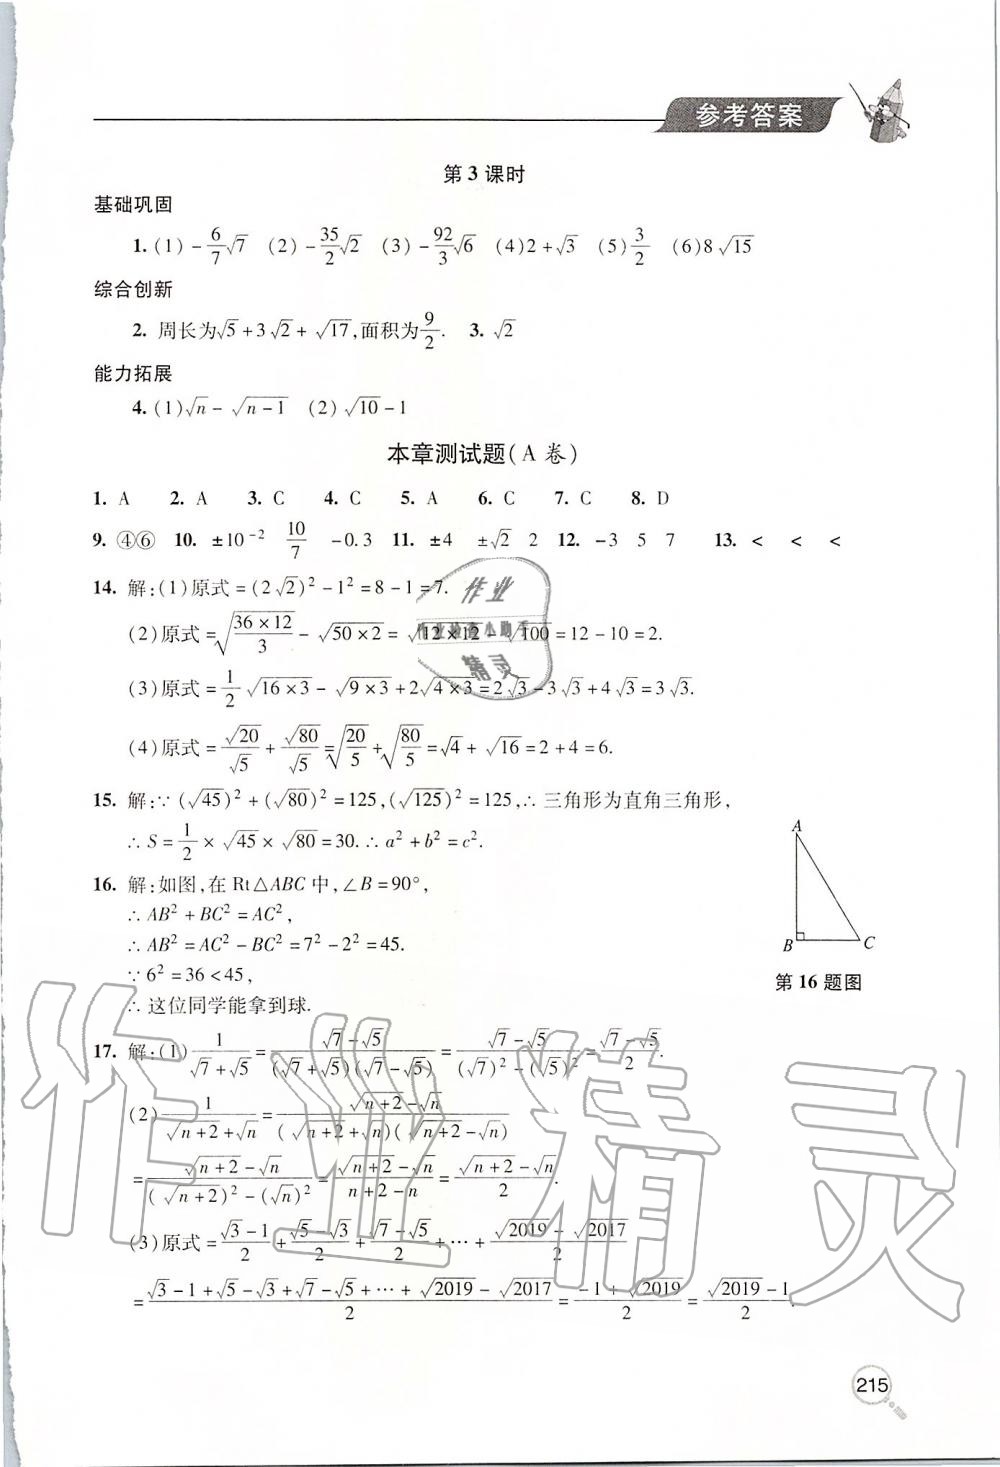 参考答案
第3课时
基础巩固
1. (1) -6/7√7 (2) -35/2√2 (3) -92/3√6 (4)2+√3 (5)3/2 (6)8√15
综合创新
2. 周长为√5+3√2+√17,面积为9/2. 3. √2
能力拓展
4. (1)√n-√(n-1) (2)√10-1
本章测试题(A卷)
1. A 2. A 3. C 4. C 5. A 6. C 7. C 8. D
9. ④⑥ 10. ±10⁻² 10/7 -0.3 11. ±4 ±√2 2 12. -3 5 7 13. < < <
14. 解:(1)原式=(2√2)²-1²=8-1=7.
(2)原式=√(36×12/3)-√(50×2)=√(12×12)-√100=12-10=2.
(3)原式=1/2√(16×3)-√(9×3)+2√(4×3)=2√3-3√3+4√3=3√3.
(4)原式=√20/√5+√80/√5=√(20/5)+√(80/5)=√4+√16=2+4=6.
15. 解:∵(√45)²+(√80)²=125,(√125)²=125,∴三角形为直角三角形,
∴S=1/2×√45×√80=30.∴a²+b²=c².
16. 解:如图,在Rt△ABC中,∠B=90°,
∴AB²+BC²=AC²,
∴AB²=AC²-BC²=7²-2²=45.
∵6²=36<45,
∴这位同学能拿到球.
A
B C
第16题图
17. 解:(1)1/(√7+√5)=(√7-√5)/((√7+√5)(√7-√5))=(√7-√5)/((√7)²-(√5)²)=(√7-√5)/2.
(2)1/(√(n+2)+√n)=(√(n+2)-√n)/((√(n+2)+√n)(√(n+2)-√n))
=(√(n+2)-√n)/((√(n+2))²-(√n)²)=(√(n+2)-√n)/(n+2-n)=(√(n+2)-√n)/2.
(3)原式=(√3-1)/2+(√5-√3)/2+(√7-√5)/2+⋯+(√2019-√2017)/2
=(√3-1+√5-√3+√7-√5+⋯+√2019-√2017)/2=(-1+√2019)/2=(√2019-1)/2.
215
作业
作业检查小助手
精灵
作业精灵